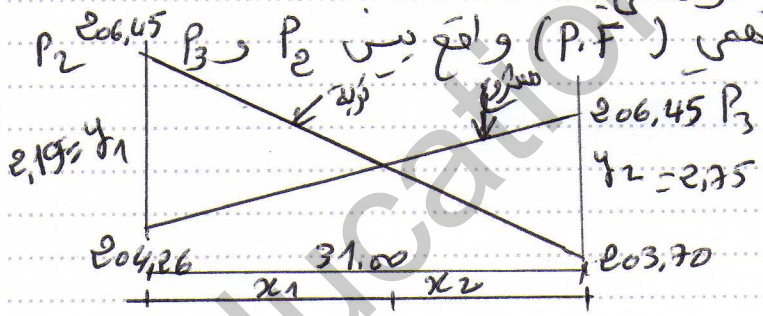 (P.F) واقع بين P2 و P3
P2 206,45
تربة
مشروع
206,45 P3
2,19=y1
y2=2,75
204,26 31.00 203,70
x1 x2
ucation